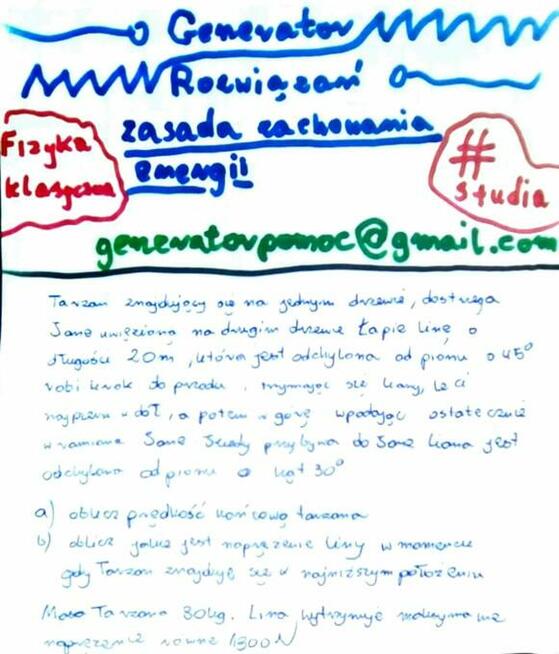 Generator
Rozwiązań
zasada zachowania
energii
Fizyka
klasyczna
#
studia
generatorpomoc@gmail.com
Tarzan znajdujący się na jednym drzewie, dostrzega
Jane uwięzioną na drugim drzewie Łapie linę o
długości 20m, która jest odchylona od pionu o 45°
robi krok do przodu, trzymając się liany, leci
najpierw w dół, a potem w górę wpadając ostatecznie
w ramiona Jane przybywa do Jane liana jest
odchylona od pionu o kąt 30°
a) oblicz prędkość końcową tarzana
b) oblicz jakie jest naprężenie liny w momencie
gdy Tarzan znajduję się w najniższym położeniu
Masa Tarzana 80kg. Lina wytrzymuje maksymalne
naprężenie równe 1300N